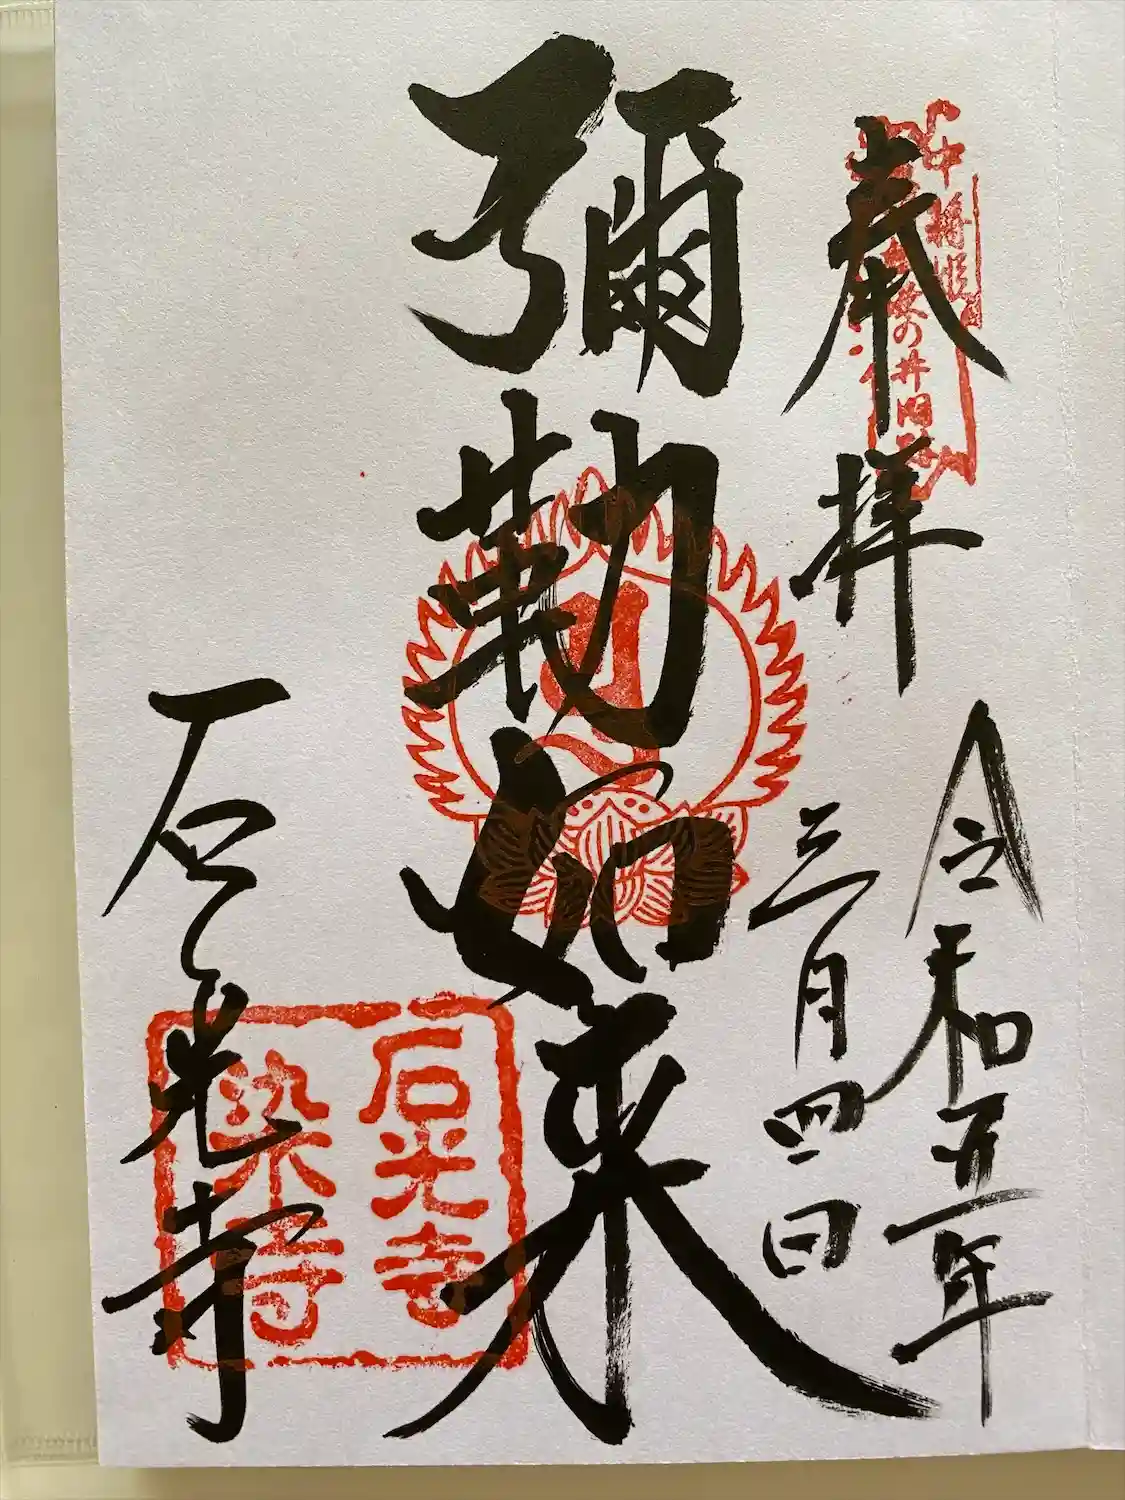 奉拝
令和五年
三月四日
彌勒如来
石光寺
中将姫
染の井旧跡
石光寺
染寺